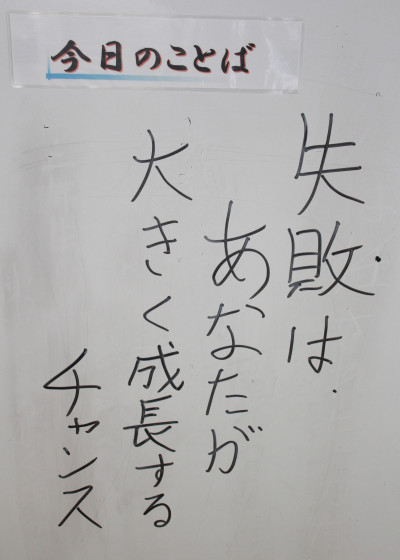 今日のことば
失敗は
あなたが
大きく成長する
チャンス